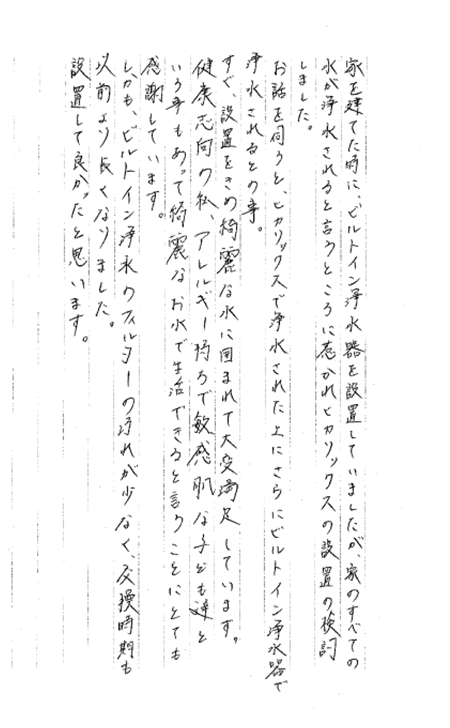 家を建てた時に、ビルトイン浄水器を設置していましたが、家のすべての
水が浄水されると言うところに惹かれヒカリックスの設置の検討
しました。
お話を伺うと、ヒカリックスで浄水された上にさらにビルトイン浄水器で
浄水されるとの事。
すぐ、設置をきめ綺麗な水に囲まれて大変満足しています。
健康志向の私、アレルギー持ちで敏感肌な子ども達と
いう事もあって綺麗なお水で生活できると言うことにとても
感謝しています。
しかも、ビルトイン浄水のフィルターの汚れが少なく、交換時期も
以前より長くなりました。
設置して良かったと思います。